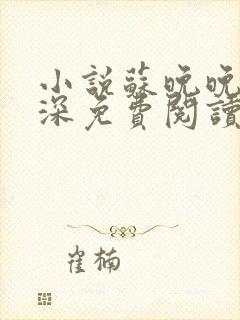 小說蘇晚晚
深免費閱讀
崔楠